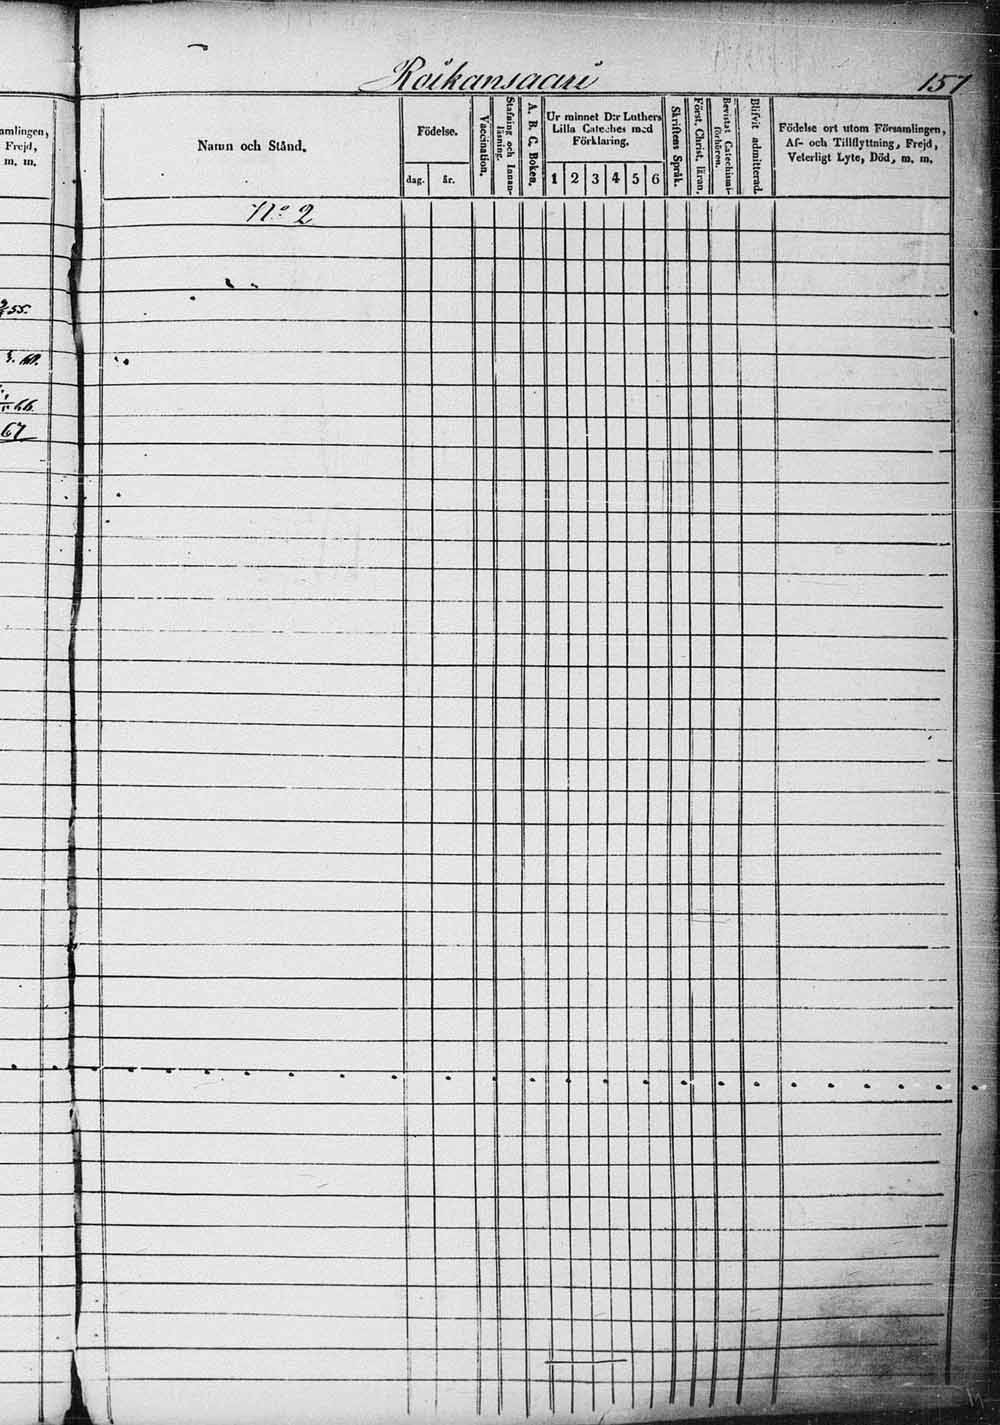 Roikansaari
157
amlingen,
Frejd,
m. m.
Namn och Stånd.
Födelse.
dag.
år.
Vaccination.
Stafning och Innan-
läsning.
A. B. C. Boken.
Ur minnet D:r Luthers
Lilla Cateches med
Förklaring.
1 2 3 4 5 6
Skriftens Språk.
Först. Christ. läran.
Bevistat Catechismi-
förhören.
Blifvit admitterad.
Födelse ort utom Församlingen,
Af- och Tillflyttning, Frejd,
Veterligt Lyte, Död, m. m.
No 2
55.
66
67